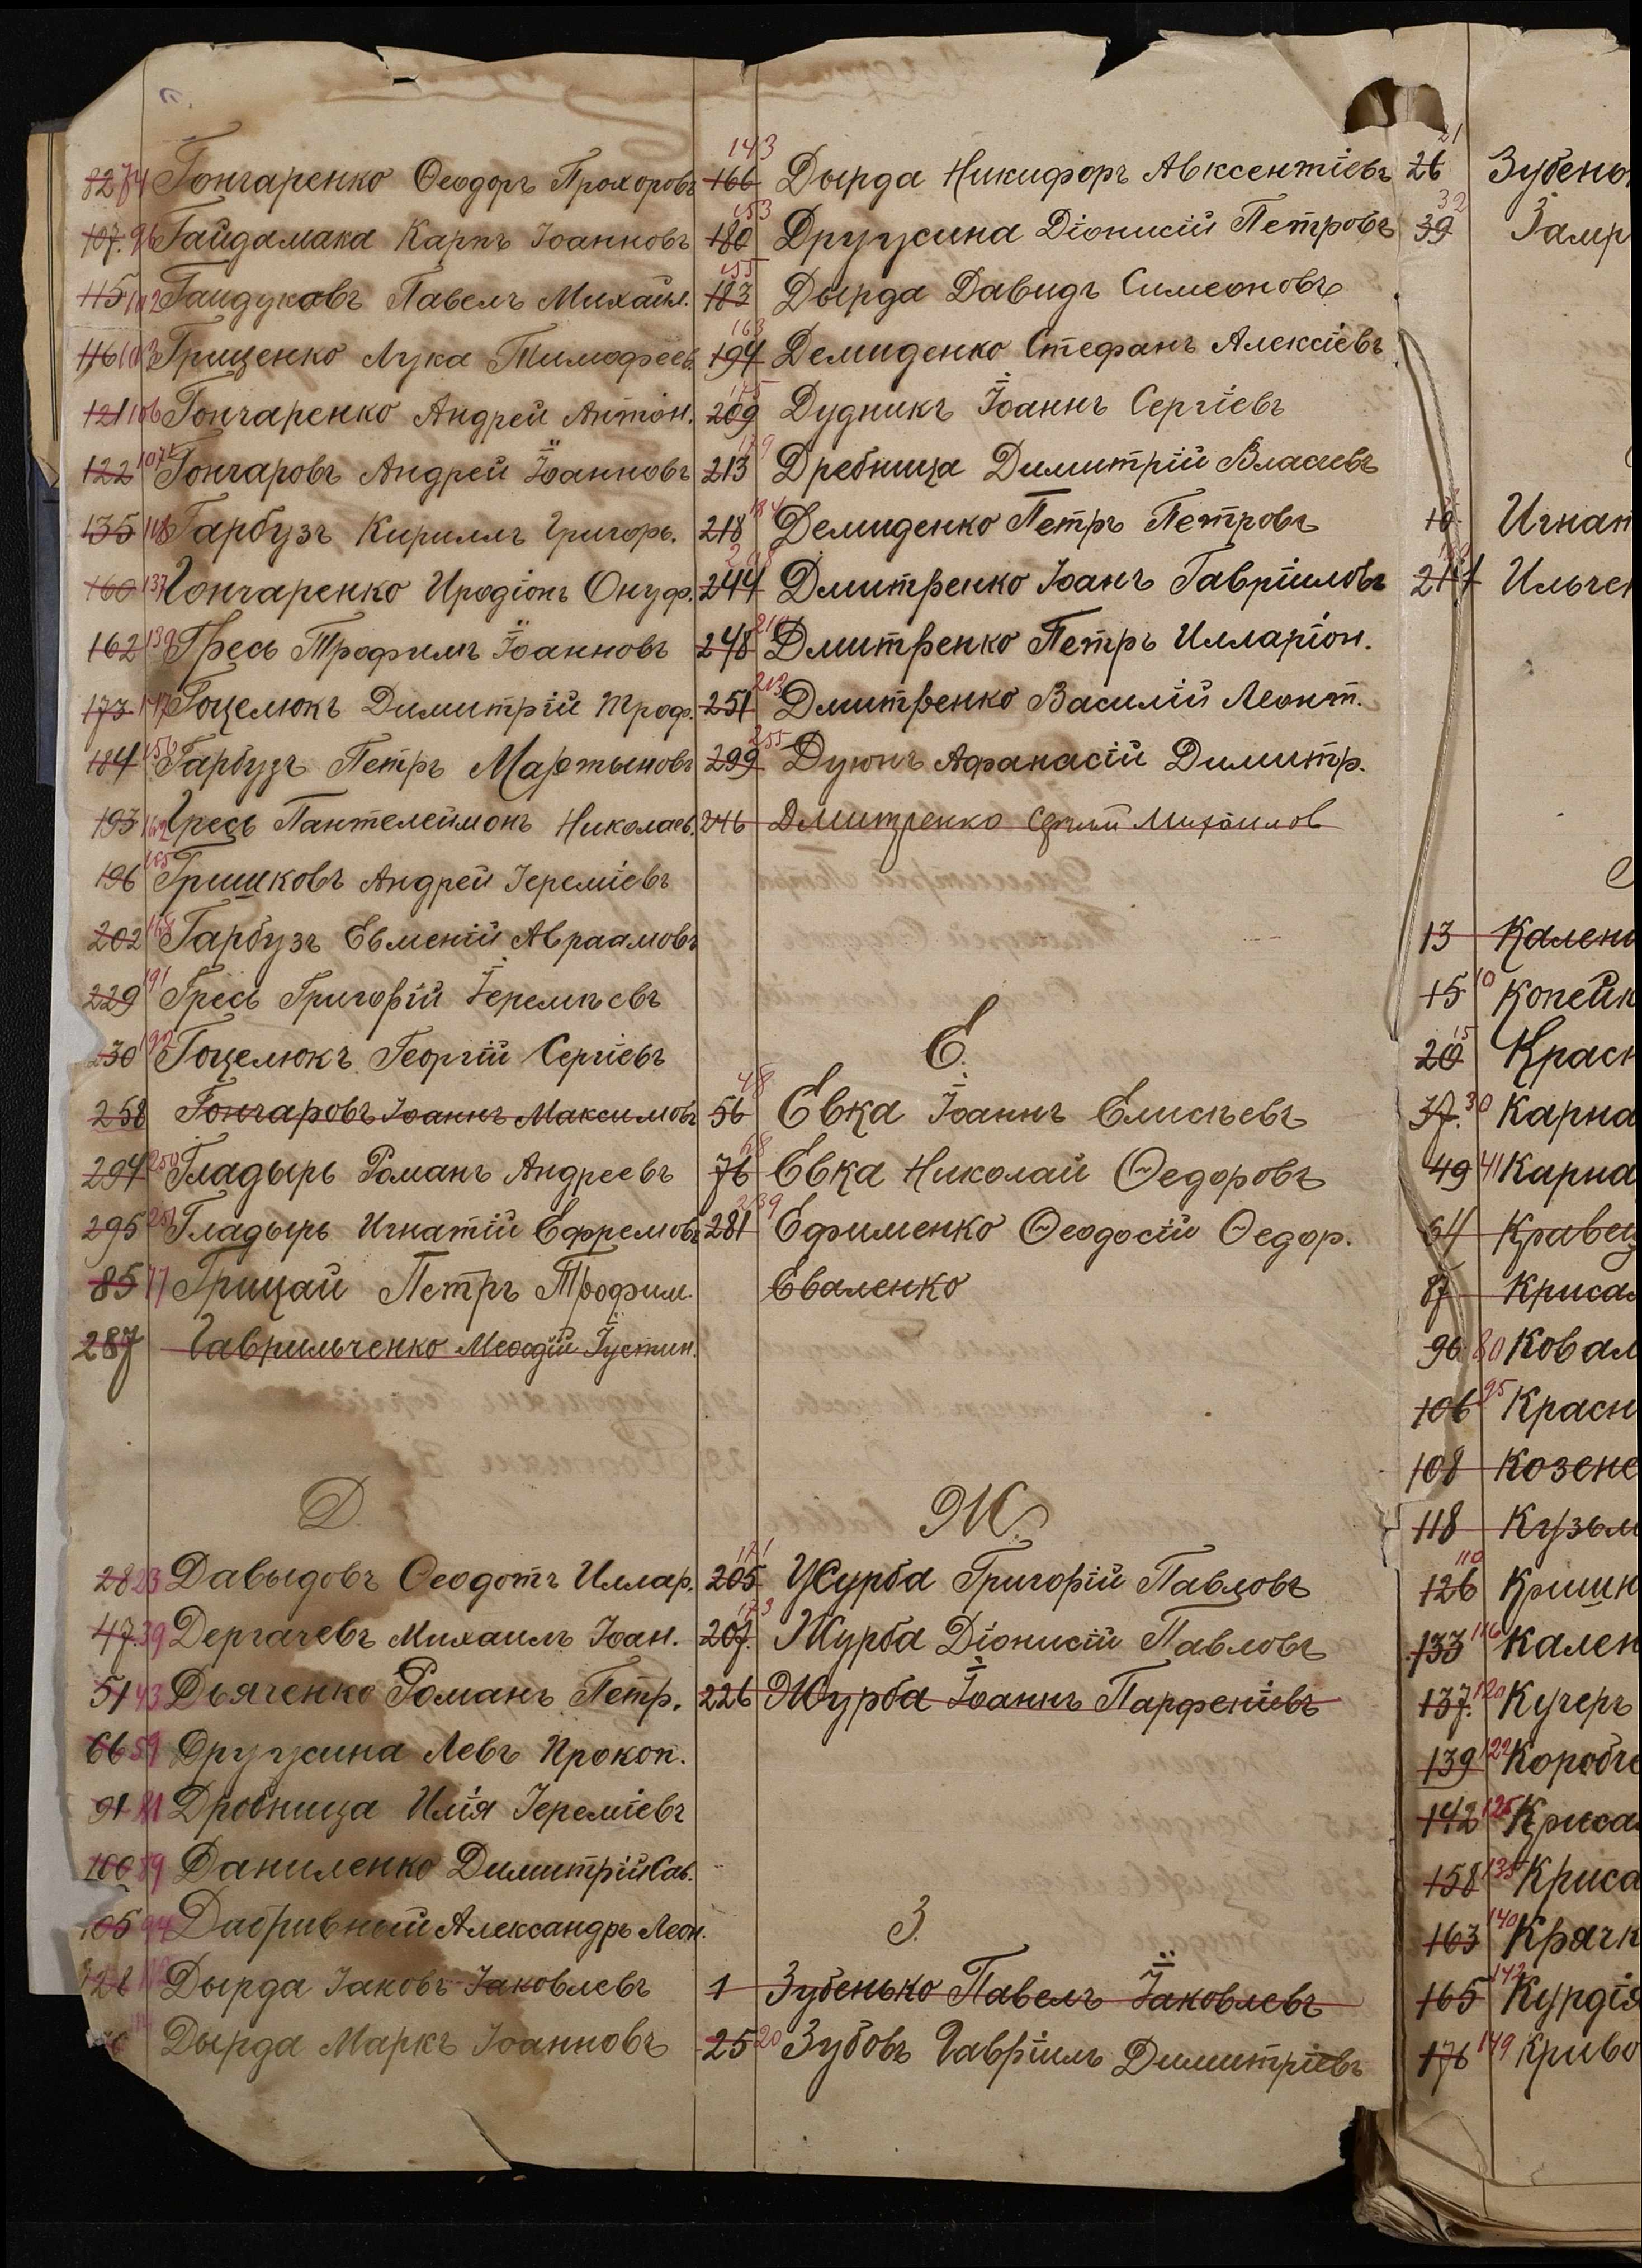 82 74 Гончаренко Ѳеодоръ Прохоровъ
107. 96 Гайдамака Карпъ Іоанновъ
115 102 Гайдуковъ Павелъ Михайл.
116 103 Грищенко Лука Тимофеев.
121 106 Гончаренко Андрей Антон.
122 107 Гончаровъ Андрей Іоанновъ
135 118 Гарбузъ Кириллъ Григорь.
160 137 Гончаренко Иродіонъ Онуф.
162 139 Гресь Трофимъ Іоанновъ
173 147 Гоцелюкъ Димитрій Троф.
184 Гарбузъ Петръ Мартыновъ
193 162 Гресь Пантелеймонъ Николаев.
196 165 Гришковъ Андрей Іереміевъ
202 168 Гарбузъ Евменій Авраамовъ
229 191 Гресь Григорій Іеремѣевъ
230 192 Гоцелюкъ Георгій Сергіевъ
258 Гончаровъ Іоаннъ Максимовъ
294 250 Гладырь Романъ Андреевъ
295 251 Гладырь Игнатій Ефремовъ
85 77 Грицай Петръ Трофим.
287 Гаврильченко Меѳодій Іустин.
Д.
28 23 Давыдовъ Ѳеодотъ Иллар.
47. 39 Дергачевъ Михаилъ Іоан.
51 43 Дьяченко Романъ Петр.
66 59 Дружина Левъ Прокоп.
91 81 Дробница Илія Іереміевъ
100 89 Даниленко Димитрій Сав.
105 94 Дабривный Александръ Леон.
128 Дырда Іаковъ Іаковлевъ
Дырда Маркъ Іоанновъ
143
166 Дырда Никифоръ Авксентіевъ
153
180 Дружина Діонисій Петровъ
155
183 Дырда Давидъ Симеоновъ
163
194 Демиденко Стефанъ Алексіевъ
175
209 Дудникъ Іоаннъ Сергіевъ
179
213 Дребница Димитрій Власіевъ
184
218 Демиденко Петръ Петровъ
244 Дмитренко Іоанъ Гавріиловъ
210
248 Дмитренко Петръ Илларіон.
213
251 Дмитренко Василій Леонт.
255
299 Дуюнъ Афанасій Димитр.
246 Дмитренко Сергій Михаилов
Е.
48
56 Евка Іоаннъ Елисѣевъ
68
76 Евка Николай Ѳедоровъ
239
281 Ефименко Ѳеодосій Ѳедор.
Еваленко
Ж.
171
205 Журба Григорій Павловъ
173
207. Журба Діонисій Павловъ
226 Журба Іоаннъ Парфеніевъ
З.
1 Зубенько Павелъ Іаковлевъ
25 20 Зубовъ Гавріилъ Димитріевъ
21
26 Зубень
32
39 Замр
10 Игнат
214 Ильчен
13 Кален
15 10 Копейк
20 15 Красн
37. 30 Карна
49 41 Карна
64 Кравец
87 Криса
96 80 Ковал
106 95 Красн
108 Козене
118 Кузьм
110
126 Кришн
133 116 Кален
137. 120 Кучеръ
139 122 Коробч
142 125 Криса
158 135 Криса
163 140 Крячк
165 142 Курдія
176 149 Криво